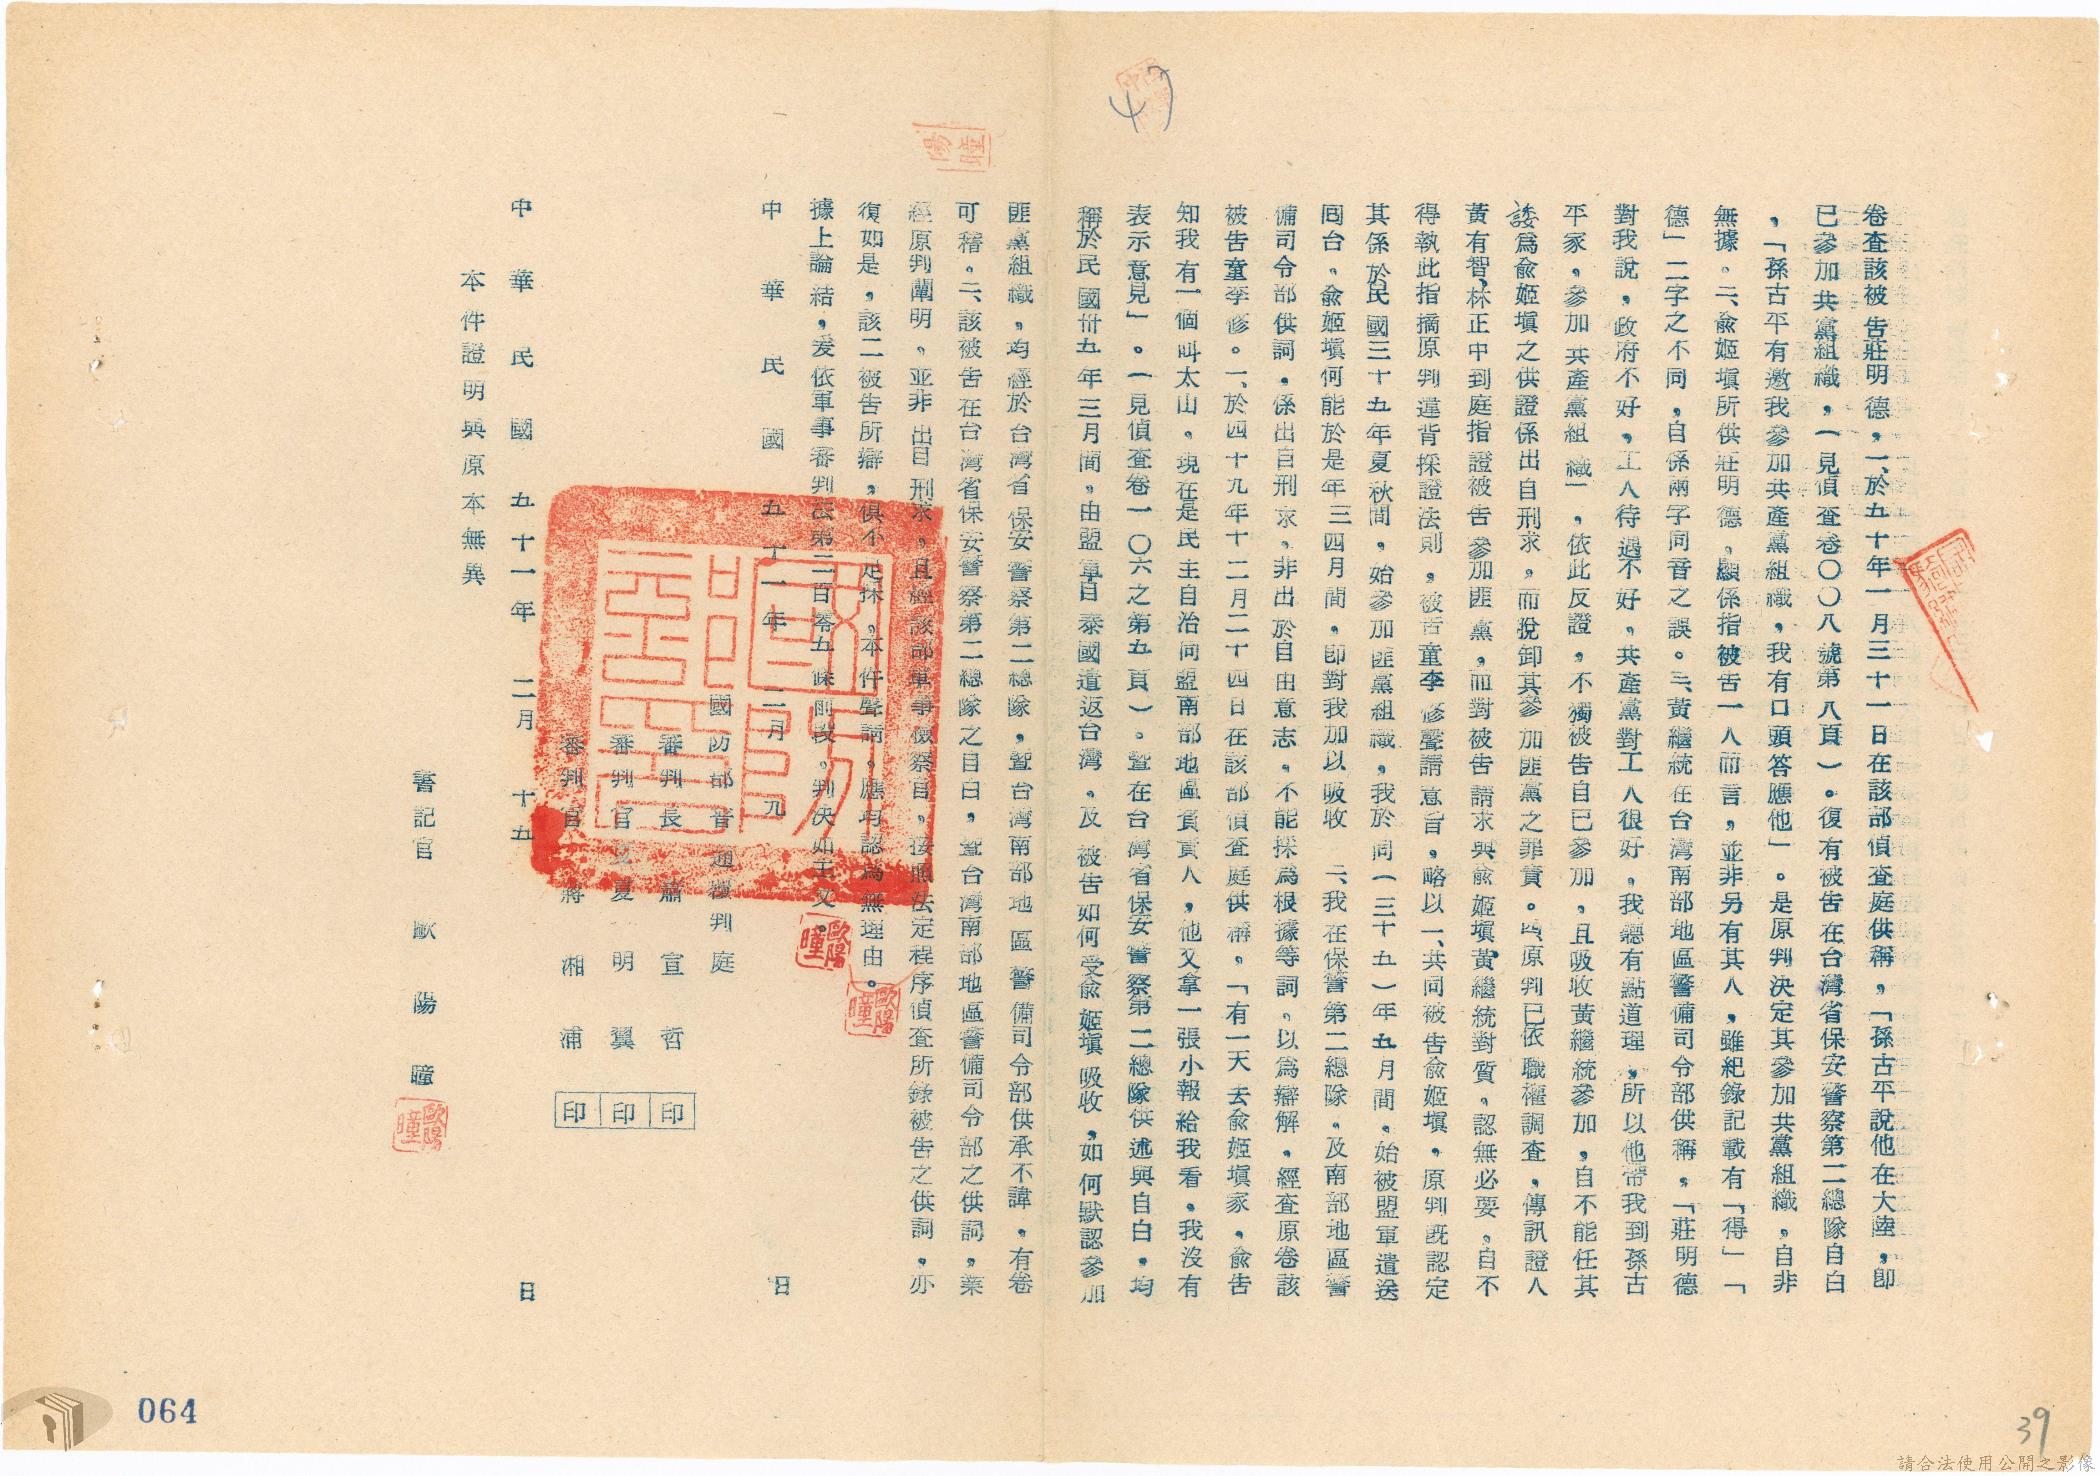 卷查該被告莊明德，一、於五十年一月三十一日在該部偵查庭供稱，「孫古平說他在大陸，卽
已參加共黨組織，（見偵查卷〇〇八號第八頁）。復有被告在台灣省保安警察第二總隊自白
，「孫古平有邀我參加共產黨組織，我有口頭答應他」。是原判決定其參加共黨組織，自非
無據。二、兪姬塡所供莊明德，顯係指被告一人而言，並非另有其人，雖紀錄記載有「得」「
德」二字之不同，自係兩字同音之誤。三、黃繼統在台灣南部地區警備司令部供稱，「莊明德
對我說，政府不好，工人待遇不好，共產黨對工人很好，我聽有點道理，所以他帶我到孫古
平家，參加共產黨組織」，依此反證，不獨被告自已參加，且吸收黃繼統參加，自不能任其
諉爲兪姬塡之供證係出自刑求，而脫卸其參加匪黨之罪責。四、原判已依職權調查，傳訊證人
黃有智、林正中到庭指證被告參加匪黨，而對被告請求與兪姬塡黃繼統對質，認無必要，自不
得執此指摘原判違背採證法則，被告童李修聲請意旨，略以一、共同被告兪姬塡，原判旣認定
其係於民國三十五年夏秋間，始參加匪黨組織，我於同（三十五）年五月間，始被盟軍遣送
囘台，兪姬塡何能於是年三四月間，卽對我加以吸收　二、我在保警第二總隊，及南部地區警
備司令部供詞，係出自刑求，非出於自由意志，不能採爲根據等詞，以爲辯解，經查原卷該
被告童李修。一、於四十九年十二月二十四日在該部偵查庭供稱，「有一天去兪姬塡家，兪告
知我有一個叫太山，現在是民主自治同盟南部地區負責人，他又拿一張小報給我看，我沒有
表示意見」。（見偵查卷一〇六之第五頁）。暨在台灣省保安警察第二總隊供述與自白，均
稱於民國卅五年三月間，由盟軍自泰國遣返台灣，及被告如何受兪姬塡吸收，如何默認參加
匪黨組織，均經於台灣省保安警察第二總隊，暨台灣南部地區警備司令部供承不諱，有卷
可稽。二、該被告在台灣省保安警察第二總隊之自白，暨台灣南部地區警備司令部之供詞，業
經原判闡明，並非出自刑求，且經該部軍事檢察官，按照法定程序偵查所錄被告之供詞，亦
復如是，該二被告所辯，俱不足採，本件聲請，應均認爲無理由。
據上論結，爰依軍事審判法第二百零五條前段，判決如主文。
中華民國五十一年二月九日
國防部普通覆判庭
審判長蕭宣哲印
審判官夏明翼印
審判官蔣湘浦印
中華民國五十一年二月十五日
本件證明與原本無異
書記官歐陽瞳
歐陽瞳
歐陽瞳
歐陽瞳
陽瞳
47
39
064
請合法使用公開之影像